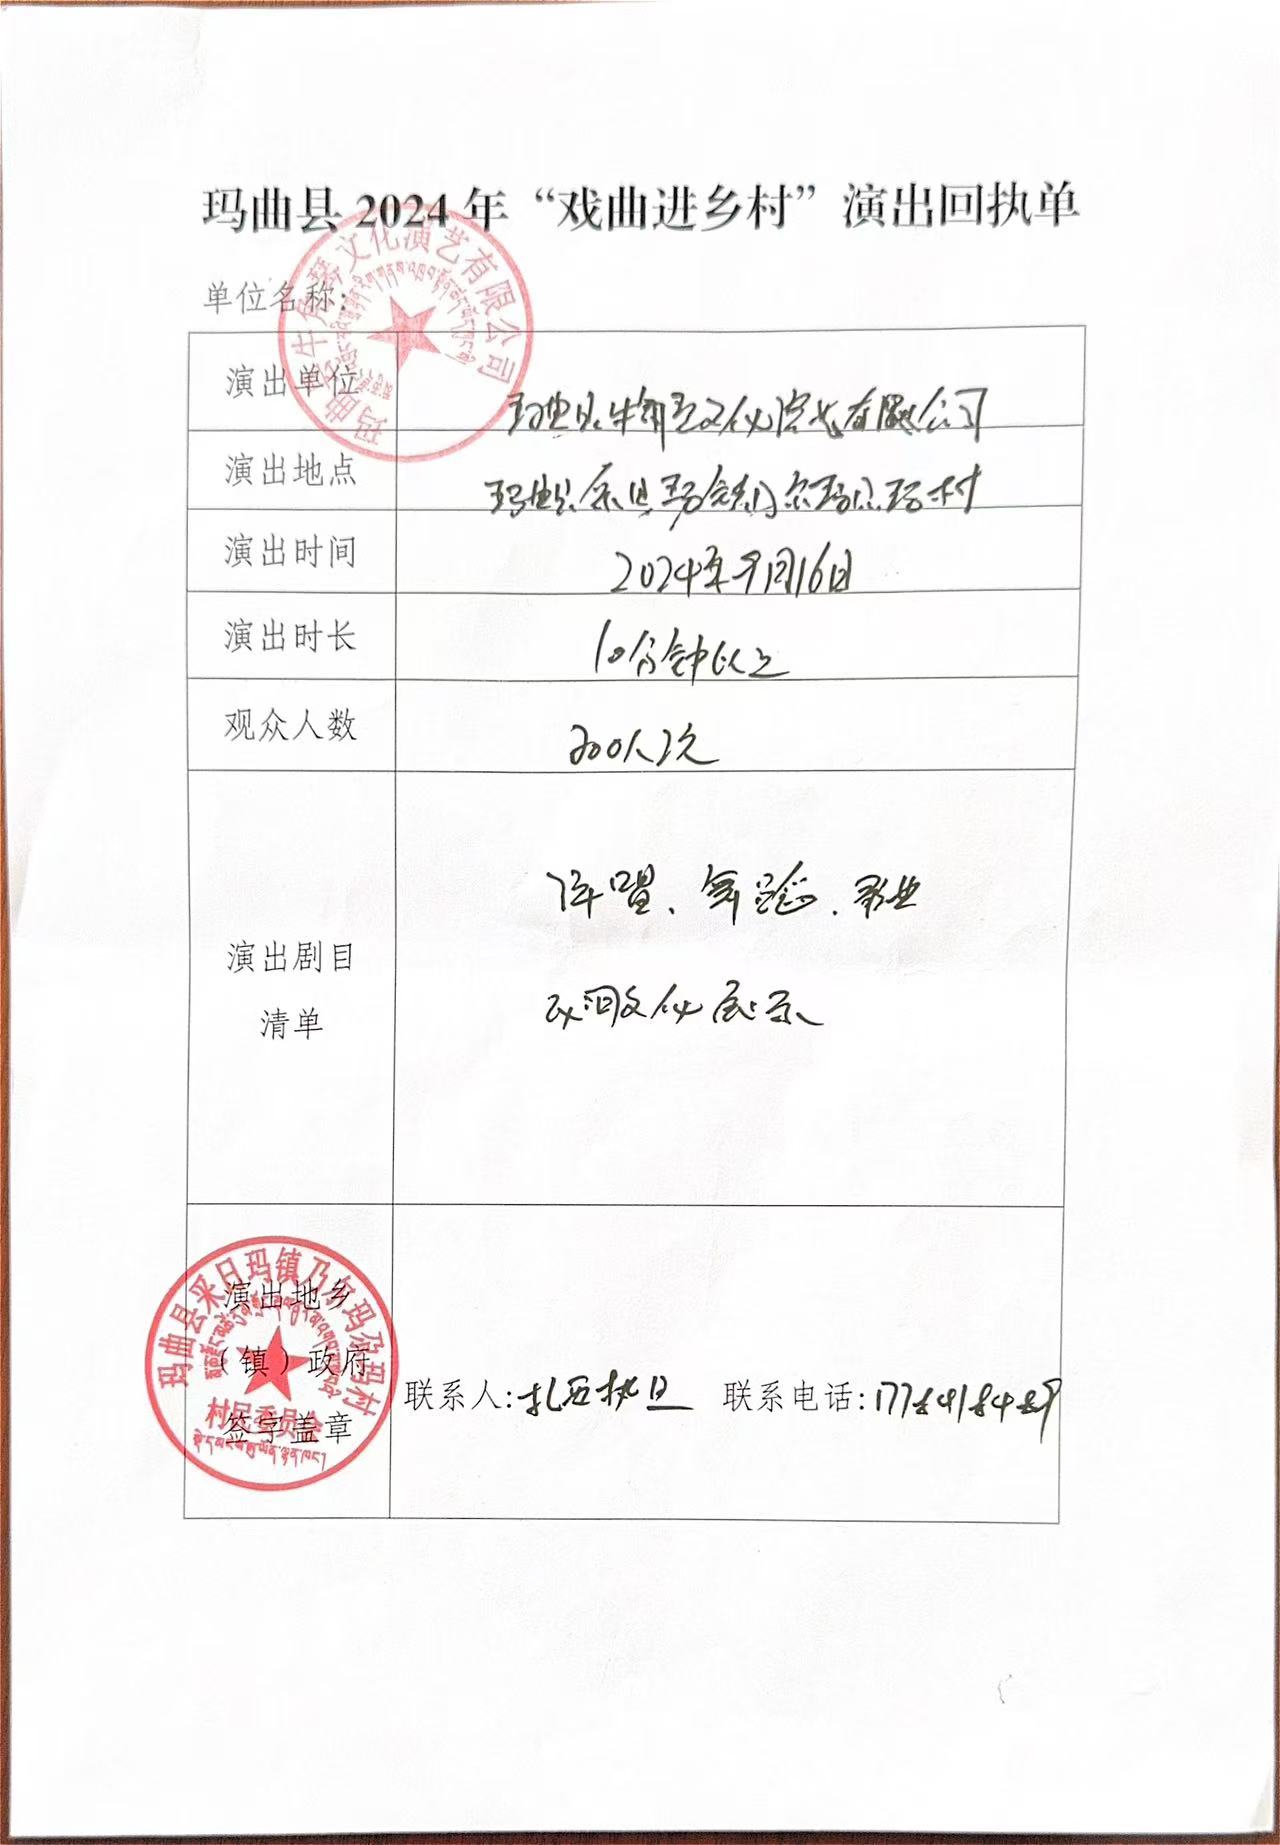 玛曲县2024年“戏曲进乡村”演出回执单
单位名称:
文化演艺有限公司
演出单位 玛曲县牛角琴文化演艺有限公司
演出地点 玛曲县采日玛镇乃尔玛尕玛村
演出时间 2024年9月16日
演出时长
观众人数 200人次
演出剧目
清单
弹唱、舞蹈、
民间文化展示
玛曲县采日玛镇乃尔玛尕玛村
村民委员会
演出地乡
(镇)政府
签字盖章
联系人:扎西 联系电话: